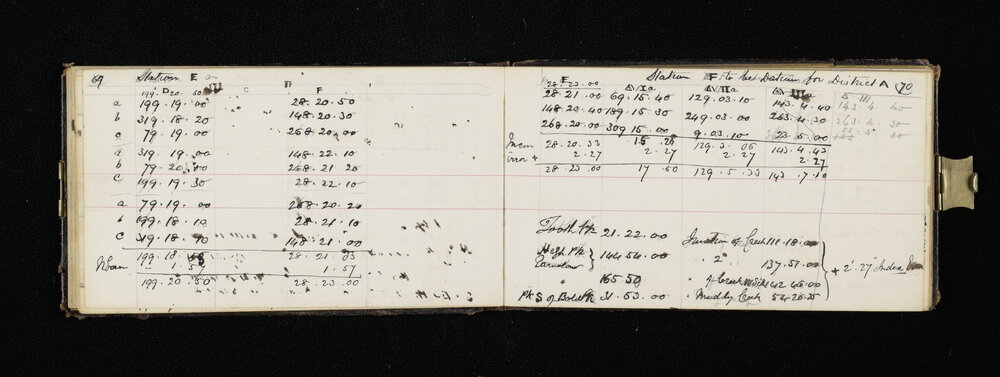 69 Station E
D III F
199. 20. 50
a 199. 19. 00 28. 20. 50
b 319. 18. 20 148. 20. 30
c 79. 19. 00 268. 20. 00
a 319. 19. 00 148. 22. 10
b 79. 20. 00 268. 21. 20
c 199. 19. 30 28. 22. 10
a 79. 19. 00 268. 20. 20
b 199. 18. 10 28. 21. 10
c 319. 18. 148. 21. 00
Mean 199. 18. 28. 21. 03
1. 57 1. 57
199. 20. 50 28. 23. 00
Station F to be Datum for District A 70
E Δ IXa Δ VIIa Δ IIIa Δ III
28. 23. 00
28. 21. 00 69. 15. 40 129. 03. 10 143. 4. 40 143. 4. 40
148. 20. 40 189. 15. 30 249. 03. 00 263. 4. 30 263. 4. 30
268. 20. 00 309. 15. 00 9. 03. 10 23. 5. 00 23. 5. 00
Mean 28. 20. 33 15. 129. 3. 06 143. 4. 43
Error + 2. 27 2. 27 2. 27 2. 27
28. 23. 00 17. 50 129. 5. 33 143. 7. 10
Tooth Pk 21. 22. 00 Junction of Creek 111. 18. 00
High Pk 144. 54. 00 " 2° 137. 57. 00
Earnslaw + 2'. 27" Index Error
" 165 50 " of Creek 142 46. 00
Pk S of Bold Pk 31. 53. 00 " Muddy Creek 54. 26. 25